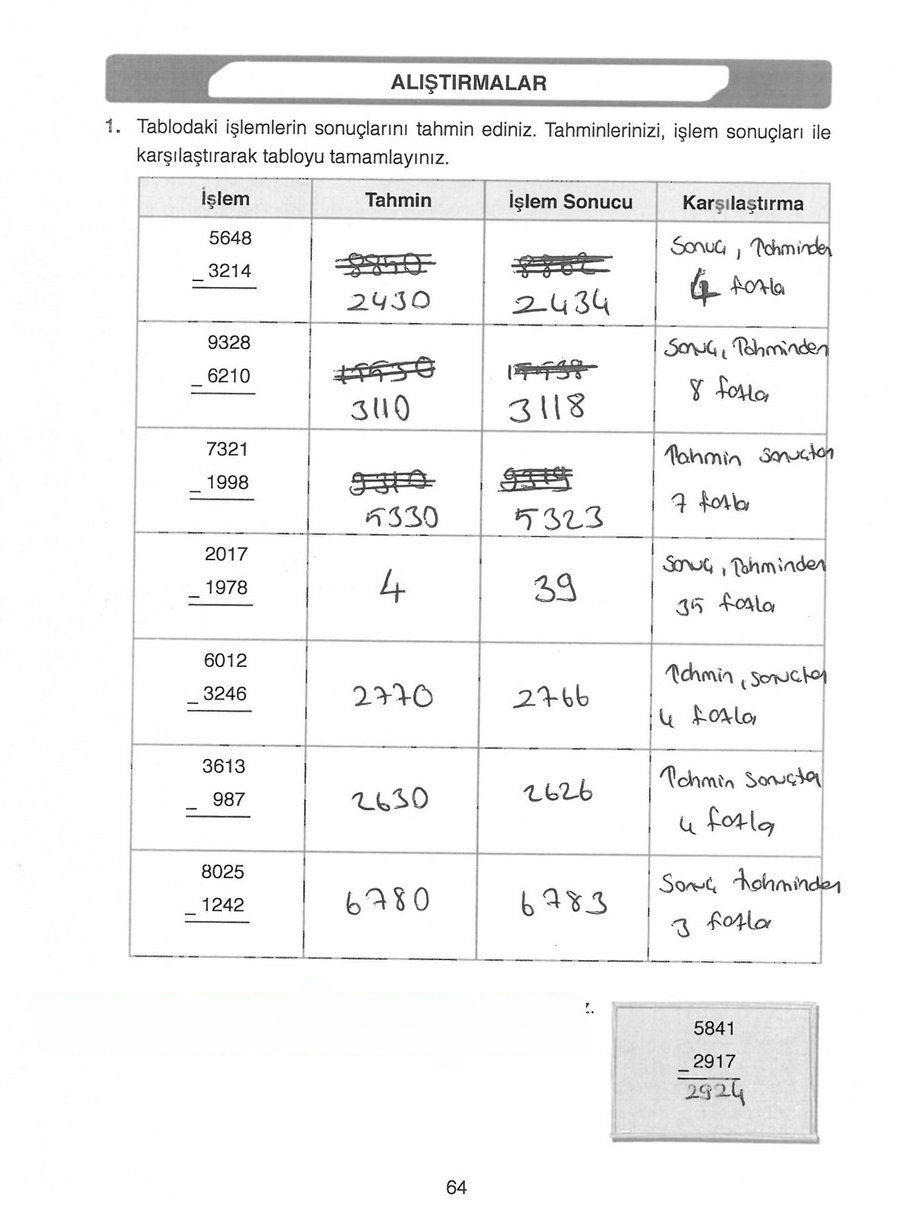 ALIŞTIRMALAR
1. Tablodaki işlemlerin sonuçlarını tahmin ediniz. Tahminlerinizi, işlem sonuçları ile
karşılaştırarak tabloyu tamamlayınız.
İşlem Tahmin İşlem Sonucu Karşılaştırma
5648
_ 3214
2430
2434
Sonuç, Tahminden
4 fazla
9328
_ 6210
3110
3118
Sonuç, Tahminden
8 fazla
7321
_ 1998
5330
5323
Tahmin sonuçtan
7 fazla
2017
_ 1978
4
39
Sonuç, Tahminden
35 fazla
6012
_ 3246
2770
2766
Tahmin, sonuçta
4 fazla
3613
_ 987
2630
2626
Tahmin sonuçta
4 fazla
8025
_ 1242
6780
6783
Sonuç tahminden
3 fazla
5841
_ 2917
2924
64